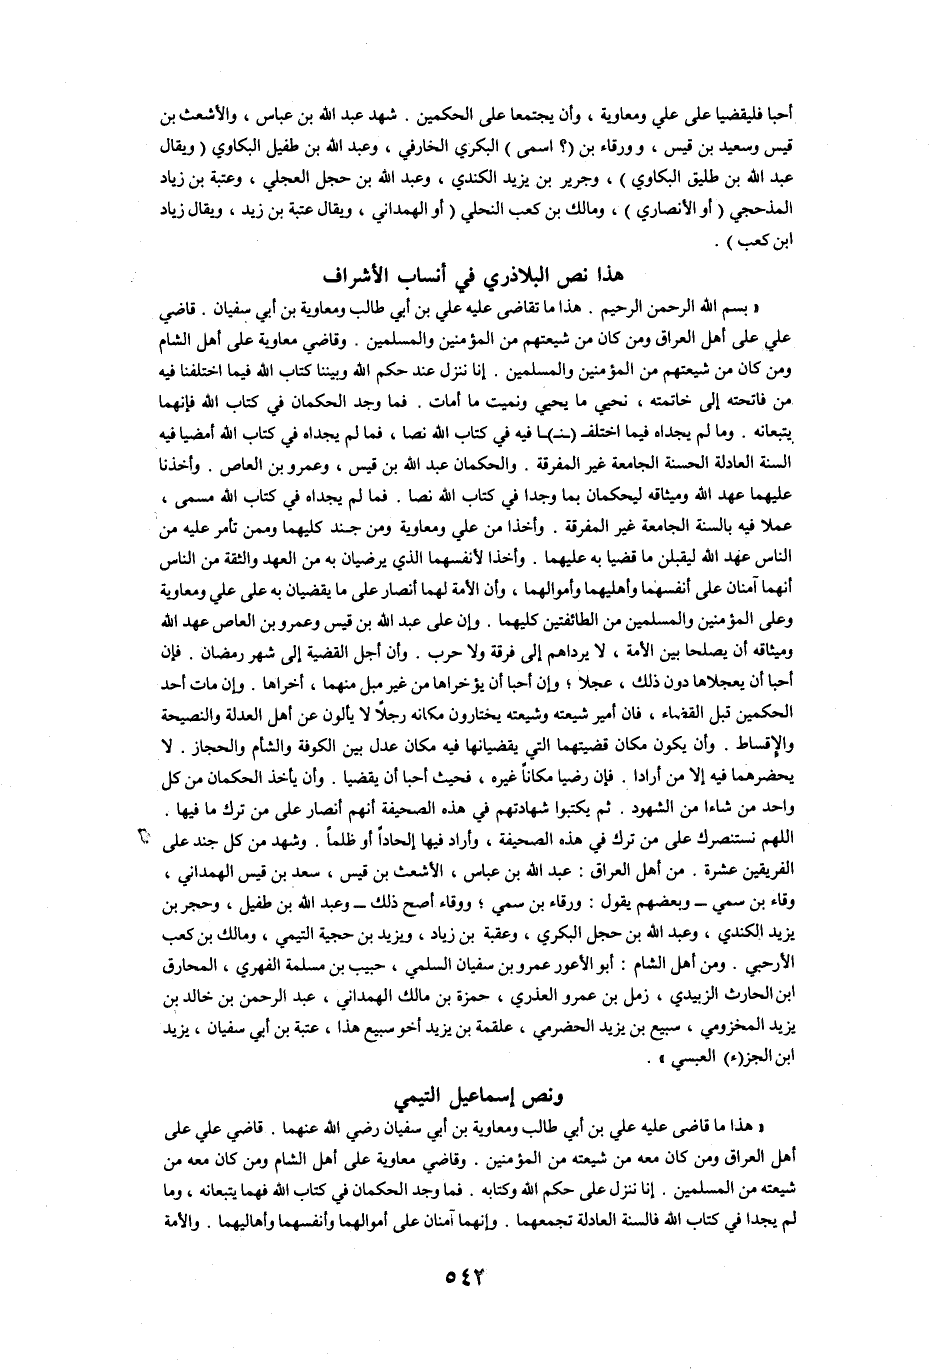 أحبا فليقضيا على علي ومعاوية ، وأن يجتمعا على الحكمين . شهد عبد الله بن عباس ، والأشعث بن
قيس وسعيد بن قيس ، و ورقاء بن (؟ اسمى ) البكري الخارفي ، وعبد الله بن طفيل البكاوي ( ويقال
عبد الله بن طليق البكاوي ) ، وجرير بن يزيد الكندي ، وعبد الله بن حجل العجلي ، وعتبة بن زياد
المذحجي ( أو الأنصاري ) ، ومالك بن كعب النحلي ( أو الهمداني ، ويقال عتبة بن زيد ، ويقال زياد
ابن كعب ) .
هذا نص البلاذري في أنساب الأشراف
« بسم الله الرحمن الرحيم . هذا ما تقاضى عليه علي بن أبي طالب ومعاوية بن أبي سفيان . قاضي
علي على أهل العراق ومن كان من شيعتهم من المؤمنين والمسلمين . وقاضي معاوية على أهل الشام
ومن كان من شيعتهم من المؤمنين والمسلمين . إنا ننزل عند حكم الله وبيننا كتاب الله فيما اختلفنا فيه
من فاتحته إلى خاتمته ، نحيي ما يحيي ونميت ما أمات . فما وجد الحكمان في كتاب الله فإنهما
يتبعانه . وما لم يجداه فيما اختلفـ (ـنـ)ـا فيه في كتاب الله نصا ، فما لم يجداه في كتاب الله أمضيا فيه
السنة العادلة الحسنة الجامعة غير المفرقة . والحكمان عبد الله بن قيس ، وعمرو بن العاص . وأخذنا
عليهما عهد الله وميثاقه ليحكمان بما وجدا في كتاب الله نصا . فما لم يجداه في كتاب الله مسمى ،
عملا فيه بالسنة الجامعة غير المفرقة . وأخذا من علي ومعاوية ومن جند كليهما وممن تأمر عليه من
الناس عهد الله ليقبلن ما قضيا به عليهما . وأخذا لأنفسهما الذي يرضيان به من العهد والثقة من الناس
أنهما آمنان على أنفسهما وأهليهما وأموالهما ، وأن الأمة لهما أنصار على ما يقضيان به على علي ومعاوية
وعلى المؤمنين والمسلمين من الطائفتين كليهما . وإن على عبد الله بن قيس وعمرو بن العاص عهد الله
وميثاقه أن يصلحا بين الأمة ، لا يرداهم إلى فرقة ولا حرب . وأن أجل القضية إلى شهر رمضان . فإن
أحبا أن يعجلاها دون ذلك ، عجلا ؛ وإن أحبا أن يؤخراها من غير مبل منهما ، أخراها . وإن مات أحد
الحكمين قبل القضاء ، فان أمير شيعته وشيعته يختارون مكانه رجلاً لا يألون عن أهل العدلة والنصيحة
والإقساط . وأن يكون مكان قضيتهما التي يقضيانها فيه مكان عدل بين الكوفة والشأم والحجاز . لا
يحضرهما فيه إلا من أرادا . فإن رضيا مكاناً غيره ، فحيث أحبا أن يقضيا . وأن يأخذ الحكمان من كل
واحد من شاءا من الشهود . ثم يكتبوا شهادتهم في هذه الصحيفة أنهم أنصار على من ترك ما فيها .
اللهم نستنصرك على من ترك في هذه الصحيفة ، وأراد فيها إلحاداً أو ظلماً . وشهد من كل جند على
الفريقين عشرة . من أهل العراق : عبد الله بن عباس ، الأشعث بن قيس ، سعد بن قيس الهمداني ،
وقاء بن سمي ــ وبعضهم يقول : ورقاء بن سمي ؛ ووقاء أصح ذلك ــ وعبد الله بن طفيل ، وحجر بن
يزيد الكندي ، وعبد الله بن حجل البكري ، وعقبة بن زياد ، ويزيد بن حجية التيمي ، ومالك بن كعب
الأرحبي . ومن أهل الشام : أبو الأعور عمرو بن سفيان السلمي ، حبيب بن مسلمة الفهري ، المحارق
ابن الحارث الزبيدي ، زمل بن عمرو العذري ، حمزة بن مالك الهمداني ، عبد الرحمن بن خالد بن
يزيد المخزومي ، سبيع بن يزيد الحضرمي ، علقمة بن يزيد أخو سبيع هذا ، عتبة بن أبي سفيان ، يزيد
ابن الجز(ء) العبسي » .
ونص إسماعيل التيمي
« هذا ما قاضى عليه علي بن أبي طالب ومعاوية بن أبي سفيان رضي الله عنهما . قاضي علي على
أهل العراق ومن كان معه من شيعته من المؤمنين . وقاضي معاوية على أهل الشام ومن كان معه من
شيعته من المسلمين . إنا ننزل على حكم الله وكتابه . فما وجد الحكمان في كتاب الله فهما يتبعانه ، وما
لم يجدا في كتاب الله فالسنة العادلة تجمعهما . وإنهما آمنان على أموالهما وأنفسهما وأهاليهما . والأمة
٥٤٢